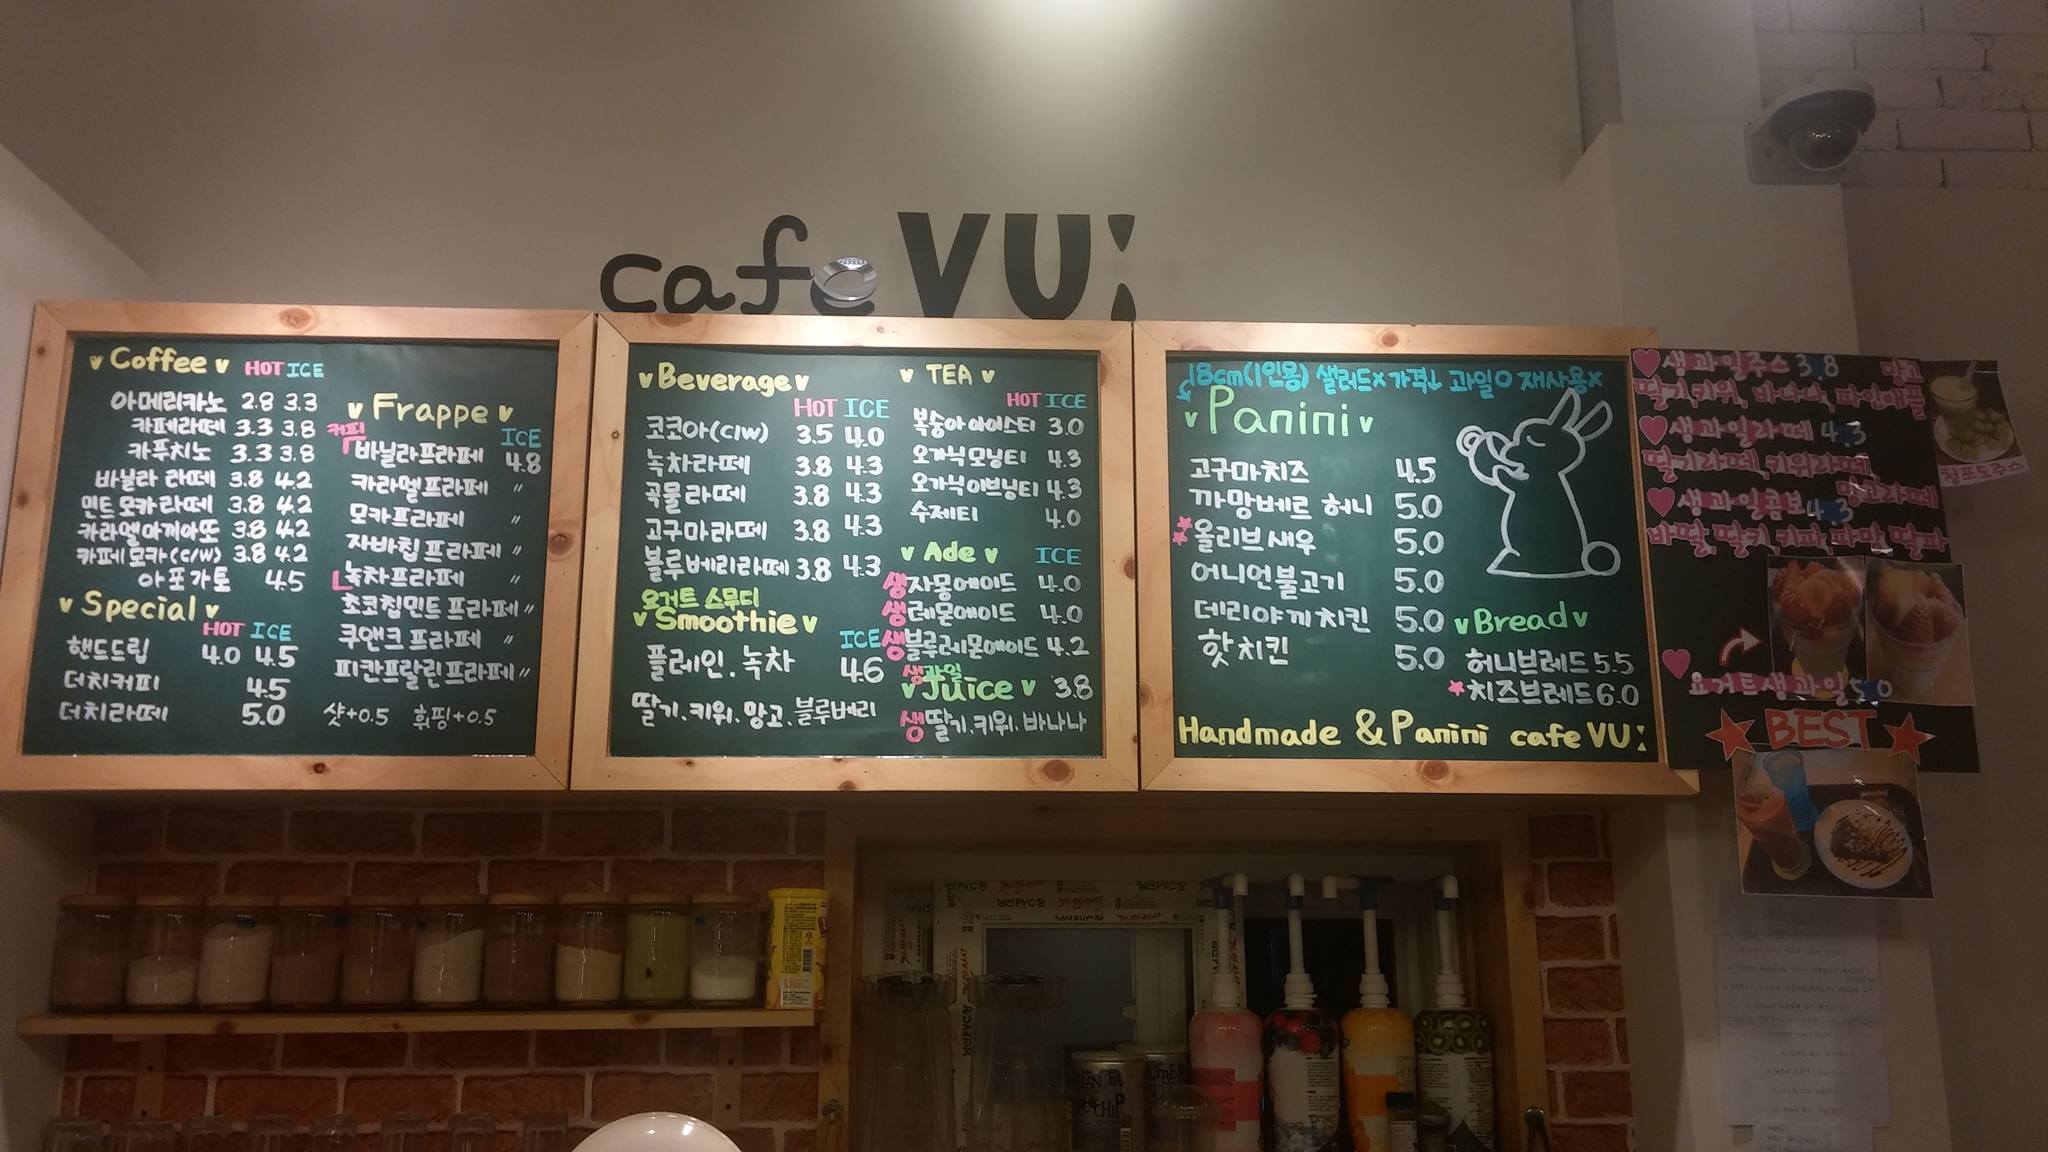 cafe VU:
Coffee HOT ICE
아메리카노 2.8 3.3
카페라떼 3.3 3.8
카푸치노 3.3 3.8
바닐라 라떼 3.8 4.2
민트 모카라떼 3.8 4.2
카라멜마끼아또 3.8 4.2
카페모카(C/W) 3.8 4.2
아포가토 4.5
Special
HOT ICE
핸드드립 4.0 4.5
더치커피 4.5
더치라떼 5.0
Frappe
커피 ICE
바닐라프라페 4.8
카라멜프라페 "
모카프라페 "
자바칩프라페 "
녹차프라페 "
초코칩민트프라페 "
쿠앤크프라페 "
피칸프랄린프라페 "
샷+0.5 휘핑+0.5
Beverage
HOT ICE
코코아(C/W) 3.5 4.0
녹차라떼 3.8 4.3
곡물라떼 3.8 4.3
고구마라떼 3.8 4.3
블루베리라떼 3.8 4.3
요거트 스무디
Smoothie
ICE
플레인.녹차 4.6
딸기.키위.망고.블루베리
TEA
HOT ICE
복숭아아이스티 3.0
오가닉모닝티 4.3
오가닉이브닝티 4.3
수제티 4.0
Ade ICE
생자몽에이드 4.0
생레몬에이드 4.0
생블루레몬에이드 4.2
생과일
Juice 3.8
생딸기.키위.바나나
18cm(1인용) 샐러드x 가격↓ 과일o 재사용x
Panini
고구마치즈 4.5
까망베르 허니 5.0
올리브새우 5.0
어니언불고기 5.0
데리야끼치킨 5.0
핫치킨 5.0
Bread
허니브레드 5.5
치즈브레드 6.0
Handmade & Panini cafe VU:
생과일주스 3.8 망고
딸기,키위,바나나,파인애플
생과일라떼 4.3
딸기라떼,키위라떼
망고라떼
생과일콤보 4.3
바딸,딸키,키파,파망,딸파
요거트생과일 5.0
BEST
청포도주스